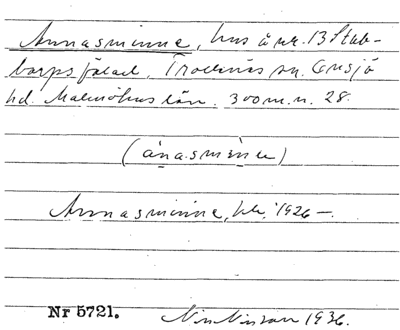 Annasminne, hus å nr. 13 Stab-
barps fälad, Trollenäs sn. Onsjö
hd. Malmöhus län. 300 m. n. 28.
(ànasmìnɛ)
Annasminne, 1926 —.
Nr 5721. Nils Nilsson 1936.